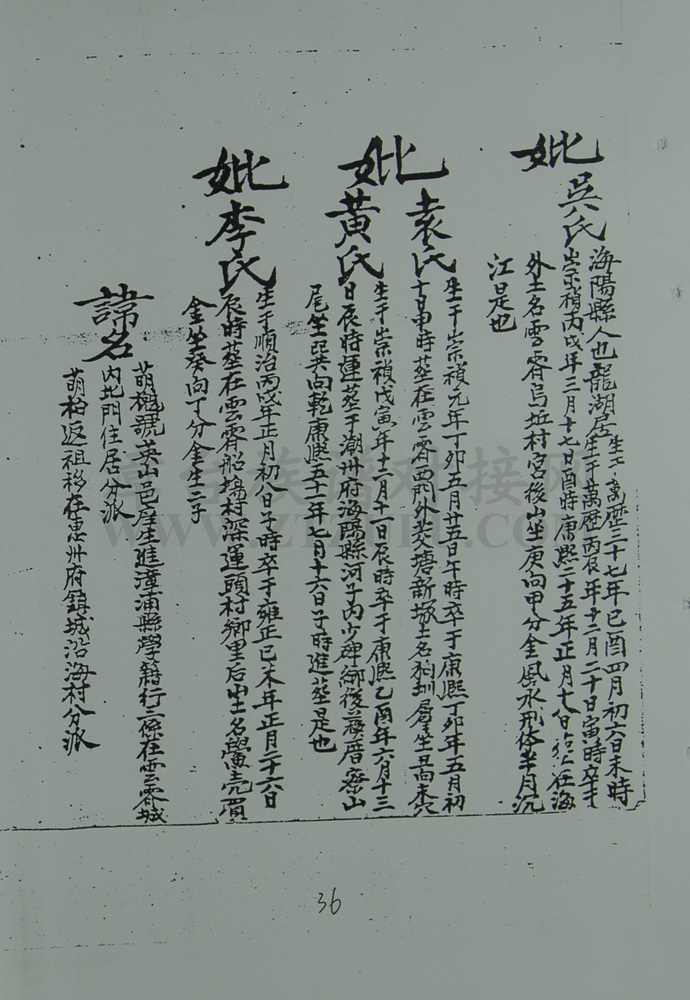 妣
吳氏
海陽縣人也龍湖居
生于萬歷三十七年己酉四月初六日未時
生于萬歷丙辰年十二月二十日寅時卒于
崇禎丙戌年三月十七日酉時康熙二十五年正月十七日 在海
外土名雲霄烏坵村宮後山坐庚向甲分金風水形体半月沉
江是也
妣
袁氏
生于崇禎元年丁卯五月廿五日午時卒于康熙丁卯年五月初
十日申時葬在雲霄西門外 塘新 土名
黃氏
生于崇禎戊寅年十二月十一日辰時卒于康熙乙酉年六月十三
日辰時運葬于潮州府海陽縣河子內少 鄉後 厝寮山
尾坐巽向乾康熙五十一年七月十六日子時進葬是也
妣
李氏
生于順治丙戌年正月初八日子時卒于雍正己未年正月二十六日
辰時葬在雲霄船塲村深運頭村鄉里后山土名
金坐癸向丁分金生二子
諱名
萌槐號英山邑庠生進漳浦縣學籍行三 在雲霄城
內北門住居分派
萌柏返祖移在惠州府鎮城沿海村分派
36